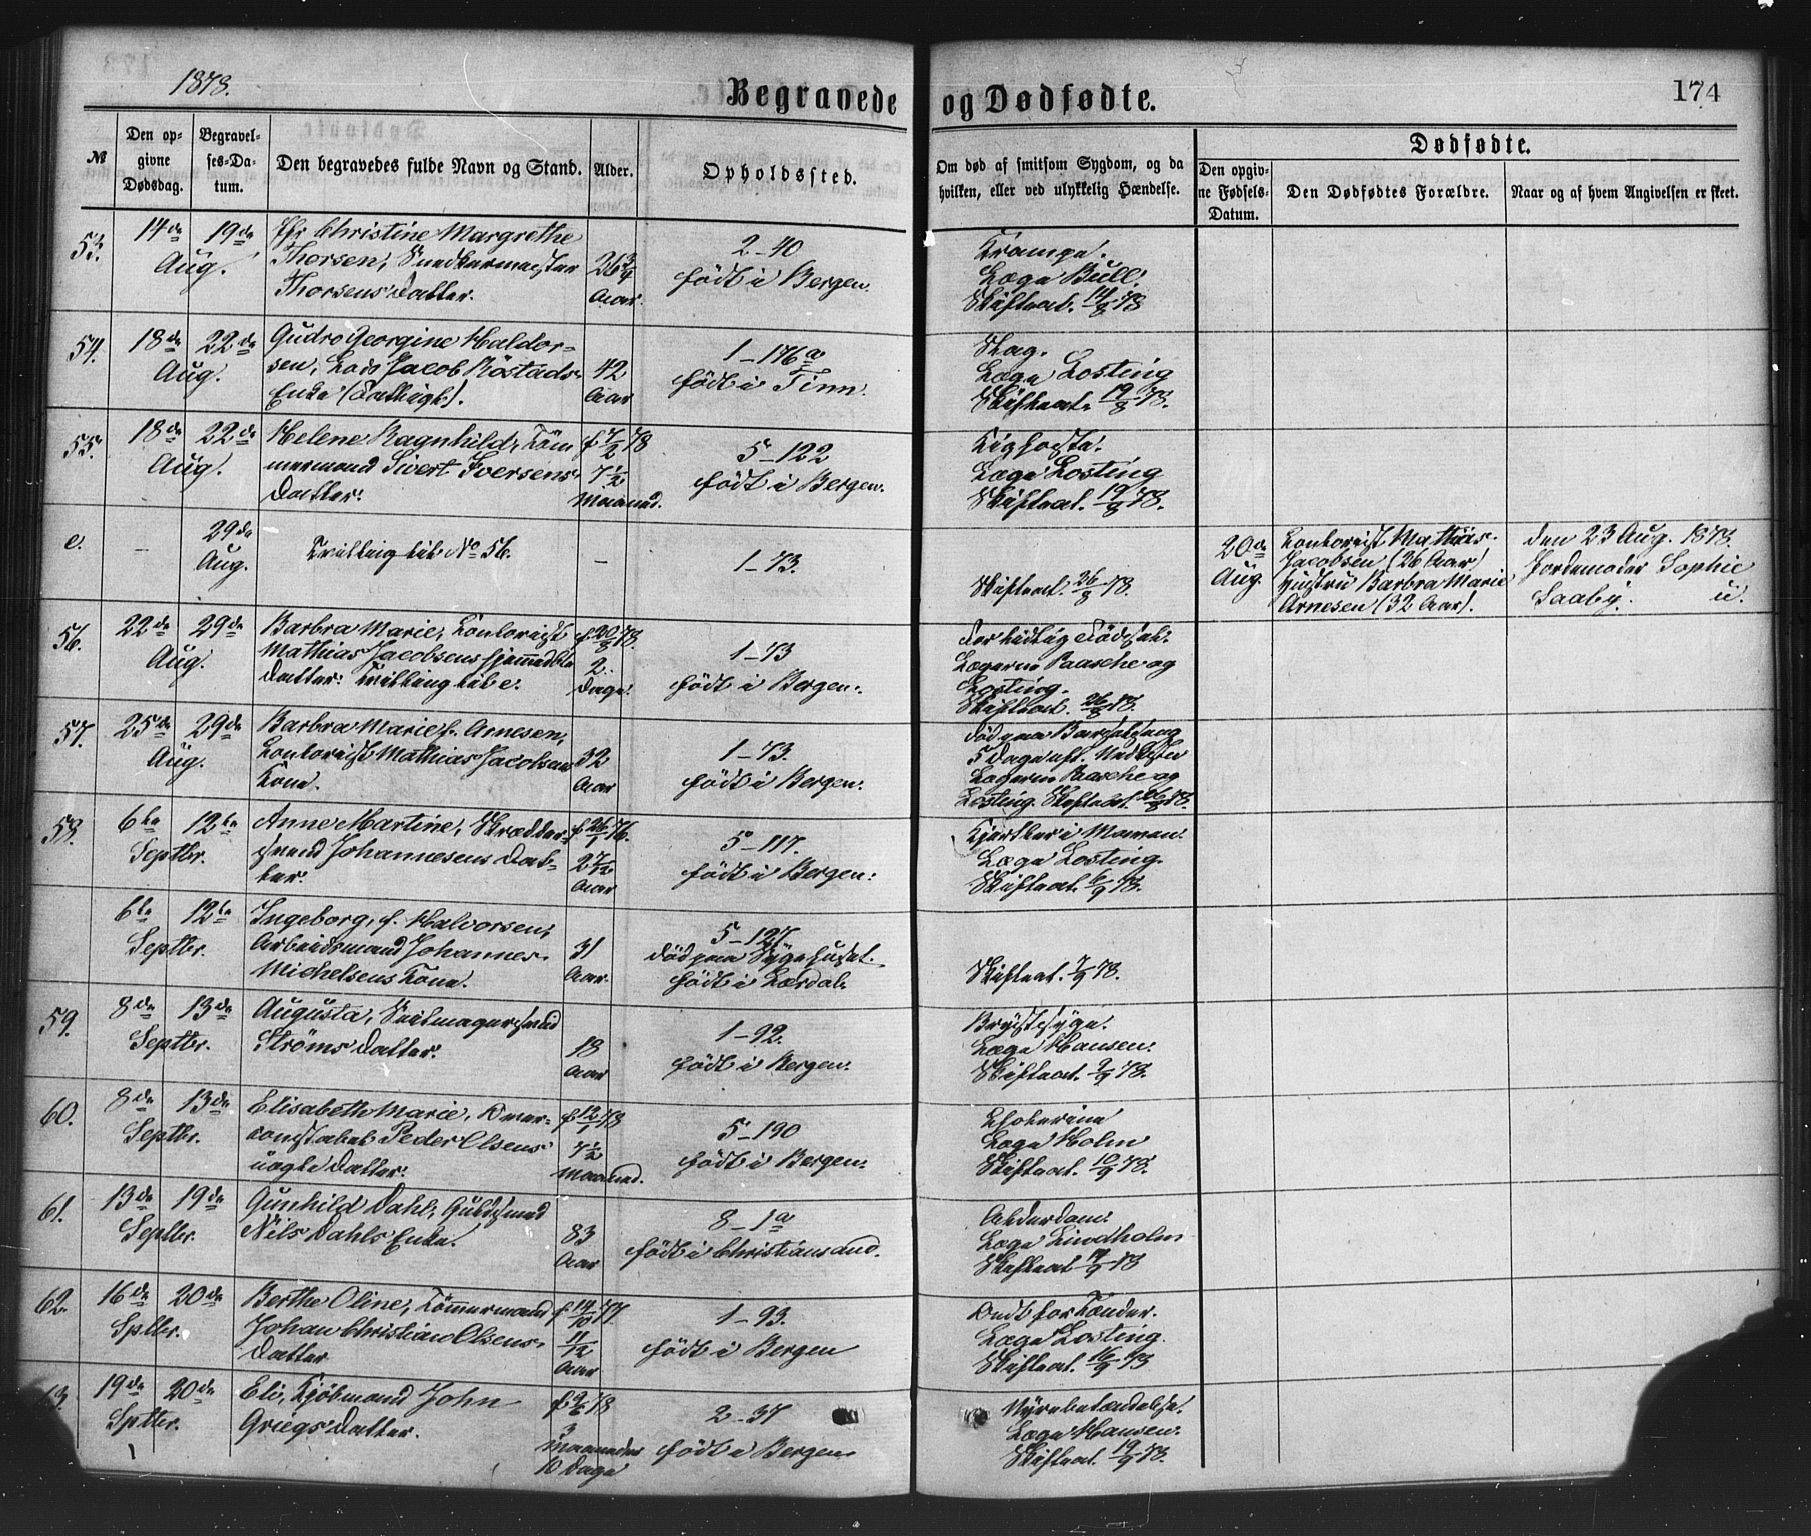 1878.
Begravede og Dødfødte.
174
№
Den opgivne Dødsdag.
Begravelses-Datum.
Den begravedes fulde Navn og Stand.
Alder.
Opholdssted.
Om død af smitsom Sygdom, og da hvilken, eller ved ulykkelig Hændelse.
Dødfødte.
Den opgivne Fødsels-Datum.
Den Dødfødtes Forældre.
Naar og af hvem Angivelsen er skeet.
53. 14de Aug. 19de
Christine Margrethe
Thorsen, Snedkermester
Thorsens Datter.
26 3/4 Aar.
2-40
født i Bergen.
Krampe.
Læge Bull.
Skifteat. 14/8 78
54. 18de Aug. 22de
Gudro Georgine Haldor-
sen, Lods Jacob Röstads
Enke (Salligt).
42 Aar
1-176a
født i Tinn.
Slag.
Læge Losting
Skifteat. 19/8 78.
55. 18de Aug. 22de
Helene Ragnhild, Töm-
mermand Sivert Iversens
Datter.
f 7/2 78
7 1/2 Maaned.
5-122
født i Bergen.
Kighoste.
Læge Losting
Skifteat. 19/8 78.
e. - 29de Aug.
Tvilling til No 56.
-
1-73.
Skifteat. 26/8 78.
20de Aug.
Kontorist Mathias
Jacobsen (26 Aar)
Hustru Barbra Marie
Arnesen (32 Aar).
den 23 Aug. 1878.
Jordemoder Sophie
Saaby. u.
56. 22de Aug. 29de
Barbra Marie, Kontorist
Mathias Jacobsens hjemmedöbte
Datter. Tvilling til e.
f 20/8 78.
2 Dage.
1-73
født i Bergen.
For tidlig Födsel.
Lægerne Paasche og
Losting.
Skifteat. 26/8 78.
57. 25de Aug. 29de
Barbra Marie f. Arnesen,
Kontorist Mathias Jacobsens
Kone.
32 Aar
1-73.
født i Bergen.
död paa Barselseng
5 Dage eft. Nedkomst.
Lægerne Paasche og
Losting. Skifteat. 26/8 78.
58. 6te Septbr. 12te
Anne Martine, Skrædder-
svend Johannesens Dat-
ter.
f 26/1 76.
2 7/12 Aar
5-117.
født i Bergen.
Kjertler i Maven.
Læge Losting.
Skifteat. 6/9 78.
6te Septbr. 12te
Ingeborg, f. Halvorsen,
Arbeidsmand Johannes
Michelsens Kone.
31 Aar.
5-127.
död paa Sygehuset.
født i Lærdal.
Skifteat. 7/9 78.
59. 8de Septbr. 13de
Augusta, Seilmagersvend
Ströms Datter.
18 Aar
1-92.
født i Bergen.
Brystsyge.
Læge Hansen.
Skifteat. 9/9 78.
60. 8de Septbr. 13de
Elisabeth Marie, Over-
constabel Peder Olsens
uægte Datter.
f 12/1 78
7 1/2 Maaned.
5-190
født i Bergen.
Cholerine
Læge Holm
Skifteat. 10/9 78.
61. 13de Septbr. 19de
Gunhild Dahl, Guldsmed
Nils Dahls Enke.
83 Aar
8-1a
født i Christiansand.
Alderdom.
Læge Lindholm
Skifteat 14/9 78
62. 16de Sptbr. 20de
Berthe Oline, Tömmermand
Johan Christian Olsens
Datter
f 14/10 77
11/12 Aar
1-93.
født i Bergen
Ondt for Tænder.
Læge Losting.
Skifteat. 16/9 78
63. 19de Sptbr. 20de
Eli, Kjöbmand John
Griegs Datter.
f 9/6 78
3 Maaneder
10 Dage
2-37
født i Bergen
Nyrebetændelse.
Læge Hansen.
Skifteat. 19/9 78.